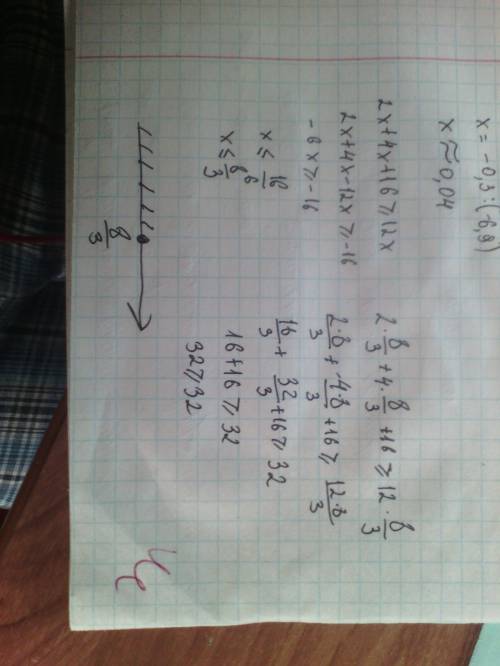 x = -0,3 : (-6,9)
x ≈ 0,04
2x+4x+16 ≥ 12x
2x+4x-12x ≥ -16
-6x ≥ -16
x ≤ 16/6
x ≤ 8/3
8/3
2·8/3 + 4·8/3 + 16 ≥ 12·8/3
2·8/3 + 4·8/3 + 16 ≥ 12·8/3
16/3 + 32/3 + 16 ≥ 32
16+16 ≥ 32
32 ≥ 32